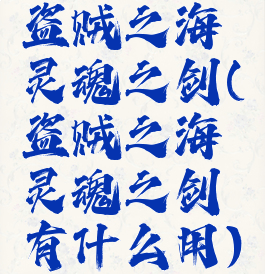 盗贼之海
灵魂之剑(
盗贼之海
灵魂之剑
有什么用)